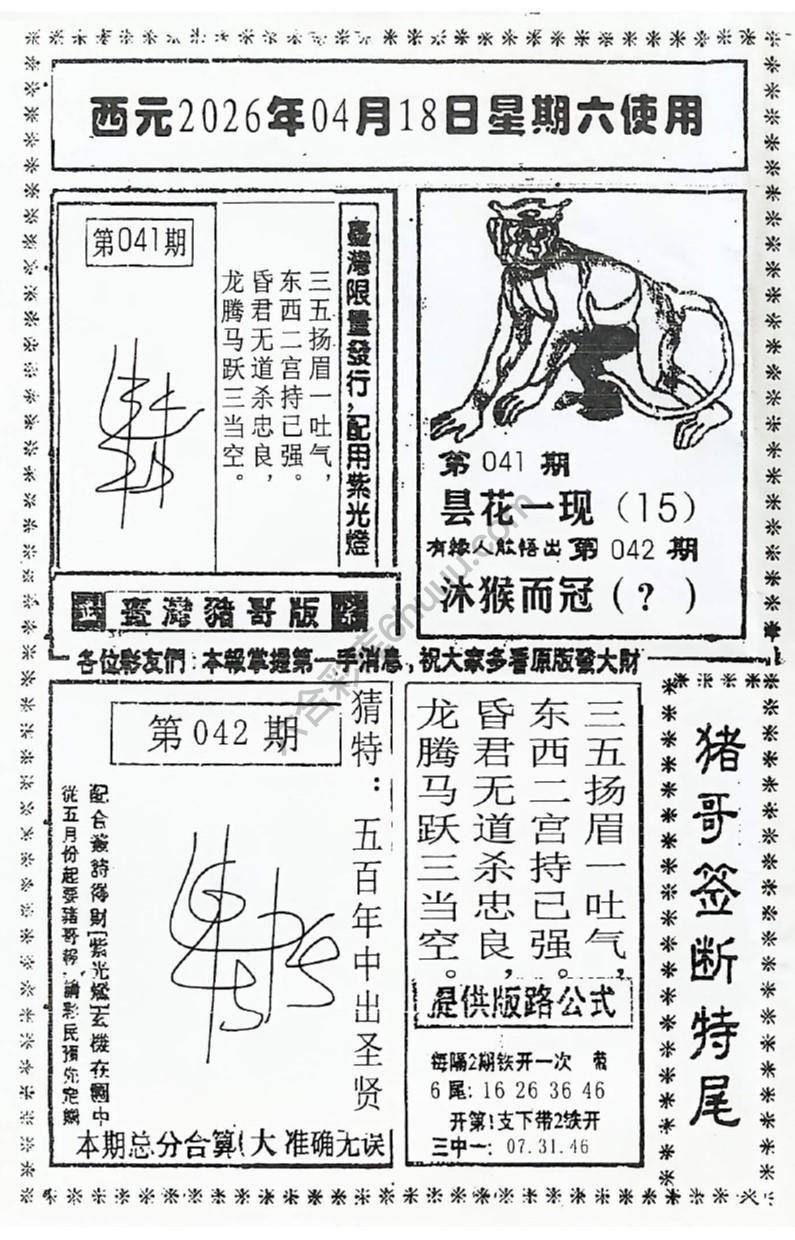 西元2026年04月18日星期六使用
第041期
臺灣限量發行,配用紫光燈
三五扬眉一吐气,
东西二宫持已强。
昏君无道杀忠良,
龙腾马跃三当空。
臺灣豬哥版
第041期
昙花一现(15)
有緣人能悟出第042期
沐猴而冠(?)
各位彩友們:本報掌握第一手消息,祝大家多看原版發大財
第042期
猜特:五百年中出圣贤
從五月份起要豬哥報,請彩民預先定購
本期总分合算(大准确无误
三五扬眉一吐气,
东西二宫持已强。
昏君无道杀忠良,
龙腾马跃三当空。
提供版路公式
每隔2期铁开一次 带
6尾:16 26 36 46
开第1支下带2铁开
三中一:07.31.46
猪哥签断特尾
六合彩库ehuuu.com